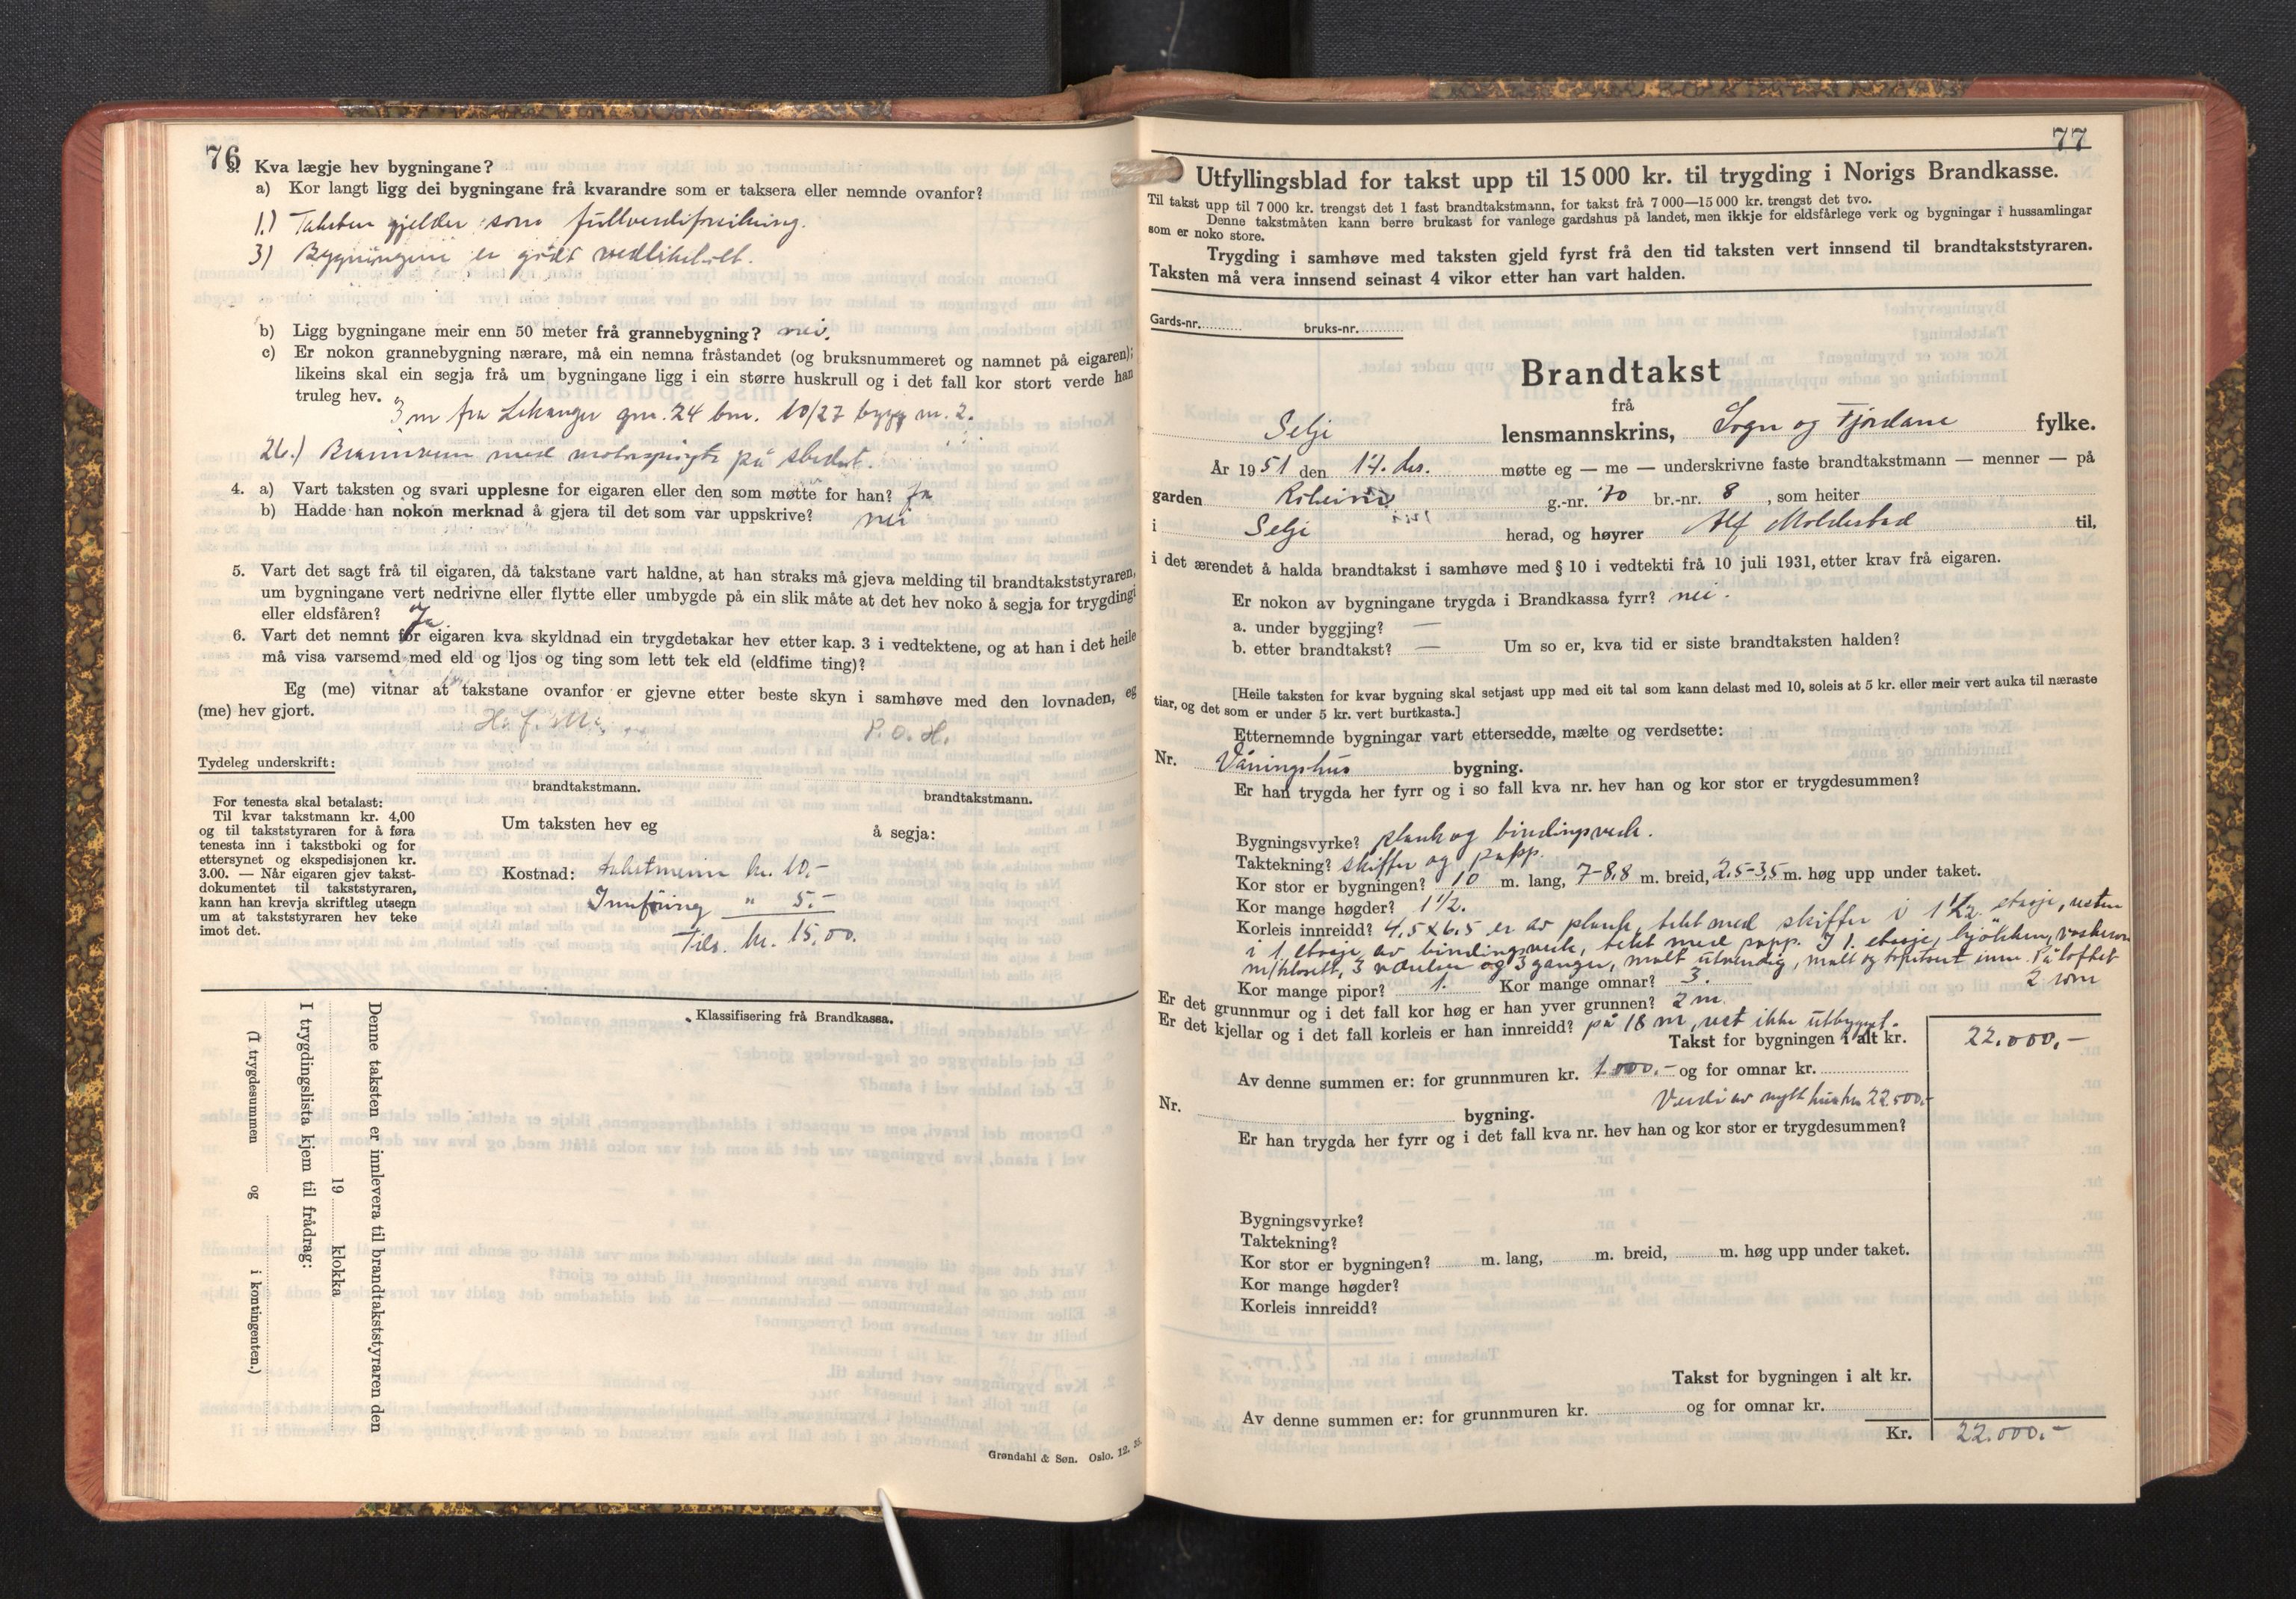 76
3. Kva lægje hev bygningane?
a) Kor langt ligg dei bygningane frå kvarandre som er taksera eller nemnde ovanfor?
1.) Taksten gjelder som fullverdiforsikring.
3) Bygningene er godt vedlikeholt.
b) Ligg bygningane meir enn 50 meter frå grannebygning? nei.
c) Er nokon grannebygning nærare, må ein nemna fråstandet (og bruksnummeret og namnet på eigaren);
likeins skal ein segja frå um bygningane ligg i ein større huskrull og i det fall kor stort verde han
truleg hev.
3 m fra Lekanger gnr. 24 bnr. 10/27 bygg nr. 2.
26.) Brannvern med motorsprøyte på stedet.
4. a) Vart taksten og svari upplesne for eigaren eller den som møtte for han? ja
b) Hadde han nokon merknad å gjera til det som var uppskrive? nei
5. Vart det sagt frå til eigaren, då takstane vart haldne, at han straks må gjeva melding til brandtakststyraren,
um bygningane vert nedrivne eller flytte eller umbygde på ein slik måte at det hev noko å segja for trygdingi
eller eldsfåren? Ja
6. Vart det nemnt for eigaren kva skyldnad ein trygdetakar hev etter kap. 3 i vedtektene, og at han i det heile
må visa varsemd med eld og ljos og ting som lett tek eld (eldfime ting)?
Eg (me) vitnar at takstane ovanfor er gjevne etter beste skyn i samhøve med den lovnaden, eg
(me) hev gjort.
P. O. H.
Tydeleg underskrift:
brandtakstmann.
brandtakstmann.
For tenesta skal betalast:
Til kvar takstmann kr. 4,00
og til takststyraren for å føra
tenesta inn i takstboki og for
ettersynet og ekspedisjonen kr.
3.00. — Når eigaren gjev takst-
dokumentet til takststyraren,
kann han krevja skriftleg utsegn
um at takststyraren hev teke
imot det.
Um taksten hev eg å segja:
Kostnad: takstmenn kr. 10.-
Innføring " 5.-
Tils. kr. 15.00.
Klassifisering frå Brandkassa.
Denne taksten er innlevera til brandtakststyraren den
19 klokka
I trygdingslista kjem til frådrag:
(I trygdesummen og i kontingenten.)
Grøndahl & Søn. Oslo. 12. 35.
77
Utfyllingsblad for takst upp til 15 000 kr. til trygding i Norigs Brandkasse.
Til takst upp til 7 000 kr. trengst det 1 fast brandtakstmann, for takst frå 7 000—15 000 kr. trengst det tvo.
Denne takstmåten kann berre brukast for vanlege gardshus på landet, men ikkje for eldsfårlege verk og bygningar i hussamlingar
som er noko store.
Trygding i samhøve med taksten gjeld fyrst frå den tid taksten vert innsend til brandtakststyraren.
Taksten må vera innsend seinast 4 vikor etter han vart halden.
Gards-nr. bruks-nr.
Brandtakst
frå
Selje lensmannskrins, Sogn og Fjordane fylke.
År 1951 den 14. des. møtte eg — me — underskrivne faste brandtakstmann — menner — på
garden g.-nr. 70 br.-nr. 8, som heiter
i Selje herad, og høyrer Alf Moldestad til,
i det ærendet å halda brandtakst i samhøve med § 10 i vedtekti frå 10 juli 1931, etter krav frå eigaren.
Er nokon av bygningane trygda i Brandkassa fyrr? nei.
a. under byggjing? —
b. etter brandtakst? — Um so er, kva tid er siste brandtaksten halden?
[Heile taksten for kvar bygning skal setjast upp med eit tal som kann delast med 10, soleis at 5 kr. eller meir vert auka til næraste
tiar, og det som er under 5 kr. vert burtkasta.]
Etternemnde bygningar vart ettersedde, mælte og verdsette:
Nr. Våningshus bygning.
Er han trygda her fyrr og i so fall kva nr. hev han og kor stor er trygdesummen?
Bygningsvyrke? plank og bindingsverk.
Taktekning? skiffer og papp.
Kor stor er bygningen? 10 m. lang, 7-8,8 m. breid, 2,5-3,5 m. høg upp under taket.
Kor mange høgder? 1½.
Korleis innreidd? 4,5 x 6,5 er av plank, tekt med skiffer i 1½ etasje, resten
i 1 etasje av bindingsverk, tekt med papp. I 1. etasje, kjøkken, vaskerom
m/klosett, 3 værelser og 3 ganger, malt utvendig, malt og tapetsert inne. På loftet
2 rom
Kor mange pipor? 1. Kor mange omnar? 3.
Er det grunnmur og i det fall kor høg er han yver grunnen? 2 m.
Er det kjellar og i det fall korleis er han innreidd? på 18 m², rest ikke utbygget.
Takst for bygningen i alt kr. 22.000.-
Av denne summen er: for grunnmuren kr. 1.000.- og for omnar kr.
Verdi av nytt hus kr. 22.500.-
Nr. bygning.
Er han trygda her fyrr og i det fall kva nr. hev han og kor stor er trygdesummen?
Bygningsvyrke?
Taktekning?
Kor stor er bygningen? m. lang, m. breid, m. høg upp under taket.
Kor mange høgder?
Korleis innreidd?
Takst for bygningen i alt kr.
Av denne summen er: for grunnmuren kr. og for omnar kr.
Kr. 22.000.-